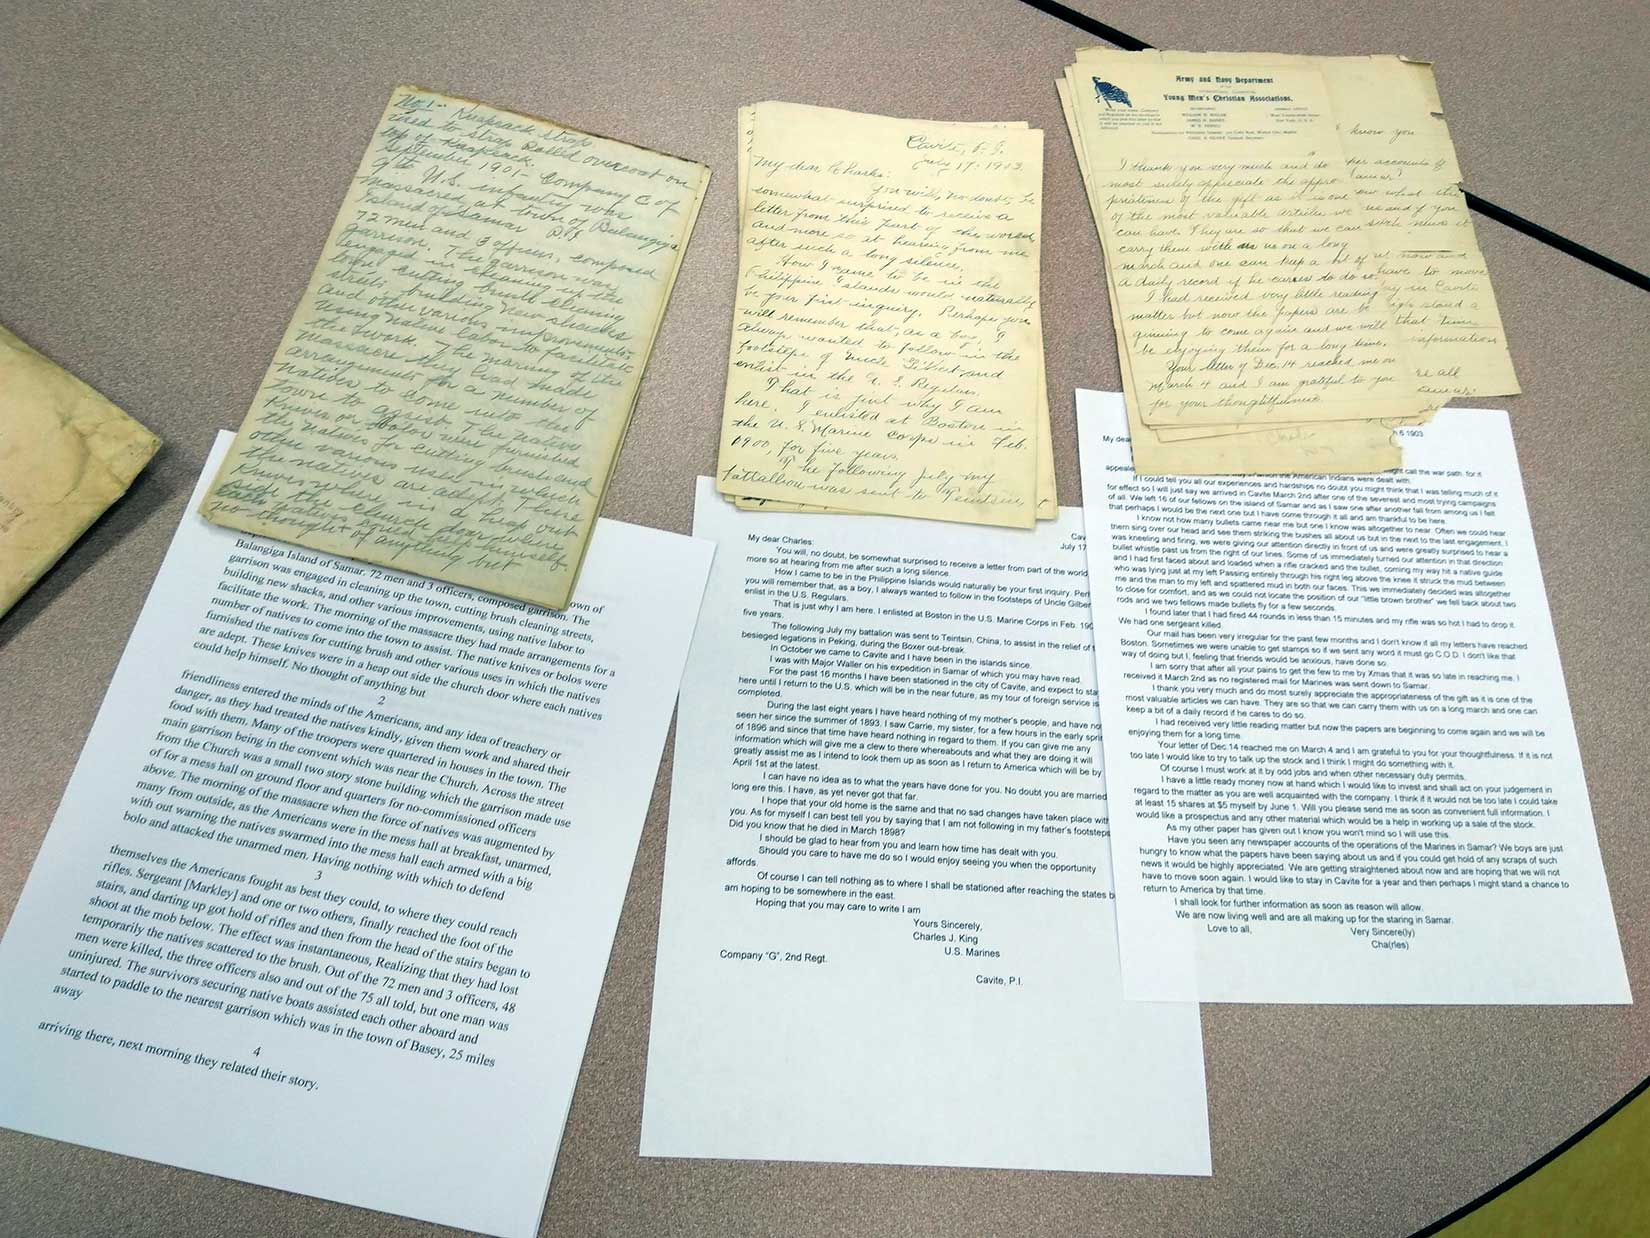 No. 1- Knapsack straps.
used to strap Rolled overcoat on
top of Knapsack.
September 1901- Company C of
9th U.S. infantry was
massacred at town of Balangiga
Island of Samar P.I.
72 men and 3 officers, composed
garrison. The garrison was
engaged in cleaning up the
town, cutting brush cleaning
streets, building new shacks
and other various improvements,
using native labor to facilitate
the work. The morning of the
massacre they had made
arrangements for a number of
natives to come into the
town to assist. The native
Knives or bolos were furnished
the natives for cutting brush and
other various uses in which
the natives are adept. These
Knives were in a heap out
side the church door where
each natives could help himself.
No thought of anything but
Balangiga Island of Samar. 72 men and 3 officers, composed garrison. The
town of
garrison was engaged in cleaning up the town, cutting brush cleaning streets,
building new shacks, and other various improvements, using native labor to
facilitate the work. The morning of the massacre they had made arrangements for a
number of natives to come into the town to assist. The native knives or bolos were
furnished the natives for cutting brush and other various uses in which the natives
are adept. These knives were in a heap out side the church door where each natives
could help himself. No thought of anything but
2
friendliness entered the minds of the Americans, and any idea of treachery or
danger, as they had treated the natives kindly, given them work and shared their
food with them. Many of the troopers were quartered in houses in the town. The
main garrison being in the convent which was near the Church. Across the street
from the Church was a small two story stone building which the garrison made use
of for a mess hall on ground floor and quarters for no-commissioned officers
above. The morning of the massacre when the force of natives was augmented by
many from outside, as the Americans were in the mess hall at breakfast, unarmed,
with out warning the natives swarmed into the mess hall each armed with a big
bolo and attacked the unarmed men. Having nothing with which to defend
3
themselves the Americans fought as best they could, to where they could reach
rifles, Sergeant [Markley] and one or two others, finally reached the foot of the
stairs, and darting up got hold of rifles and then from the head of the stairs began to
shoot at the mob below. The effect was instantaneous, Realizing that they had lost
temporarily the natives scattered to the brush. Out of the 72 men and 3 officers, 48
men were killed, the three officers also and out of the 75 all told, but one man was
uninjured. The survivors securing native boats assisted each other aboard and
started to paddle to the nearest garrison which was in the town of Basey, 25 miles
away
4
arriving there, next morning they related their story.
Cavite, P.I.
July 17 - 1903.
My dear Charles:
You will, no doubt, be
somewhat surprised to receive a
letter from this part of the world,
and more so at hearing from me
after such a long silence.
How I came to be in the
Philippine Islands would naturally
be your first inquiry. Perhaps you
will remember that, as a boy, I
always wanted to follow in the
footsteps of Uncle Gilbert and
enlist in the U.S. Regulars.
That is just why I am
here. I enlisted at Boston in
the U.S. Marine Corps in Feb.
1900, for five years.
The following July my
battalion was sent to Tientsin,
Cav
July 17
My dear Charles:
You will, no doubt, be somewhat surprised to receive a letter from part of the world
more so at hearing from me after such a long silence.
How I came to be in the Philippine Islands would naturally be your first inquiry. Per
you will remember that, as a boy, I always wanted to follow in the footsteps of Uncle Gilber
enlist in the U.S. Regulars.
That is just why I am here. I enlisted at Boston in the U.S. Marine Corps in Feb. 190
five years.
The following July my battalion was sent to Teintsin, China, to assist in the relief of t
besieged legations in Peking, during the Boxer out-break.
In October we came to Cavite and I have been in the islands since.
I was with Major Waller on his expedition in Samar of which you may have read.
For the past 16 months I have been stationed in the city of Cavite, and expect to sta
here until I return to the U.S. which will be in the near future, as my tour of foreign service is
completed.
During the last eight years I have heard nothing of my mother's people, and have no
seen her since the summer of 1893. I saw Carrie, my sister, for a few hours in the early sprin
of 1896 and since that time have heard nothing in regard to them. If you can give any
information which will give me a clew to there whereabouts and what they are doing it will
greatly assist me as I intend to look them up as soon as I return to America which will be by
April 1st at the latest.
I can have no idea as to what the years have done for you. No doubt you are married
long ere this. I have, as yet never got that far.
I hope that your old home is the same and that no sad changes have taken place with
you. As for myself I can best tell you by saying that I am not following in my father's footsteps
Did you know that he died in March 1898?
I should be glad to hear from you and learn how time has dealt with you.
Should you care to have me do so I would enjoy seeing you when the opportunity
affords.
Of course I can tell nothing as to where I shall be stationed after reaching the states b
am hoping to be somewhere in the east.
Hoping that you may care to write I am
Yours Sincerely,
Charles J. King
U.S. Marines
Company "G", 2nd Regt.
Cavite, P.I.
Army and Navy Department
Young Men's Christian Associations.
know you
I thank you very much and do
most surely appreciate the appro-
priateness of the gift as it is one
of the most valuable articles we
can have. They are so that we can
carry them with us on a long
march and one can keep a bit of
a daily record if he cares to do so.
I had received very little reading
matter but now the papers are be-
ginning to come again and we will
be enjoying them for a long time.
Your letter of Dec. 14 reached me on
March 4 and I am grateful to you
for your thoughtfulness.
per accounts of
us and if you
such news it
now and
have to move
stand a
that time
information
re all
My dear
6 1903
ght call the war path. for it
appeale
American Indians were dealt with.
If I could tell you all our experiences and hardships no doubt you might think that I was telling much of it
for effect so I will just say we arrived in Cavite March 2nd after one of the severest and most trying campaigns
of all. We left 16 of our fellows on the island of Samar and as I saw one after another fall from among us I felt
that perhaps I would be the next one but I have come through it all and am thankful to be here.
I know not how many bullets came near me but one I know was altogether to near. Often we could hear
them sing over our head and see them striking the bushes all about us but in the next to the last engagement, I
was kneeling and firing, we were giving our attention directly in front of us and were greatly surprised to hear a
bullet whistle past us from the right of our lines. Some of us immediately turned our attention in that direction
and I had first faced about and loaded when a rifle cracked and the bullet, coming my way hit a native guide
who was lying just at my left Passing entirely through his right leg above the knee it struck the mud between
me and the man to my left and spattered mud in both our faces. This we immediately decided was altogether
to close for comfort, and as we could not locate the position of our "little brown brother" we fell back about two
rods and we two fellows made bullets fly for a few seconds.
I found later that I had fired 44 rounds in less than 15 minutes and my rifle was so hot I had to drop it.
We had one sergeant killed.
Our mail has been very irregular for the past few months and I don't know if all my letters have reached
Boston. Sometimes we were unable to get stamps so if we sent any word it must go C.O.D. I don't like that
way of doing but I, feeling that friends would be anxious, have done so.
I am sorry that after all your pains to get the few to me by Xmas that it was so late in reaching me. I
received it March 2nd as no registered mail for Marines was sent down to Samar.
I thank you very much and do most surely appreciate the appropriateness of the gift as it is one of the
most valuable articles we can have. They are so that we can carry them with us on a long march and one can
keep a bit of a daily record if he cares to do so.
I had received very little reading matter but now the papers are beginning to come again and we will be
enjoying them for a long time.
Your letter of Dec. 14 reached me on March 4 and I am grateful to you for your thoughtfulness. If it is not
too late I would like to try to talk up the stock and I think I might do something with it.
Of course I must work at by odd jobs and when other necessary duty permits.
I have a little ready money now at hand which I would like to invest and shall act on your judgement in
regard to the matter as you are well acquainted with the company. I think if it would not be too late I could take
at least 15 shares at $5 myself by June 1. Will you please send me as soon as convenient full information. I
would like a prospectus and any other material which would be a help in working up a sale of the stock.
As my other paper has given out I know you won't mind so I will use this.
Have you seen any newspaper accounts of the operations of the Marines in Samar? We boys are just
hungry to know what the papers have been saying about us and if you could get hold of any scraps of such
news it would be highly appreciated. We are getting straightened about now and are hoping that we will not
have to move soon again. I would like to stay in Cavite for a year and then perhaps I might stand a chance to
return to America by that time.
I shall look for further information as soon as reason will allow.
We are now living well and are all making up for the staring in Samar.
Love to all,
Very Sincere(ly)
Cha(rles)